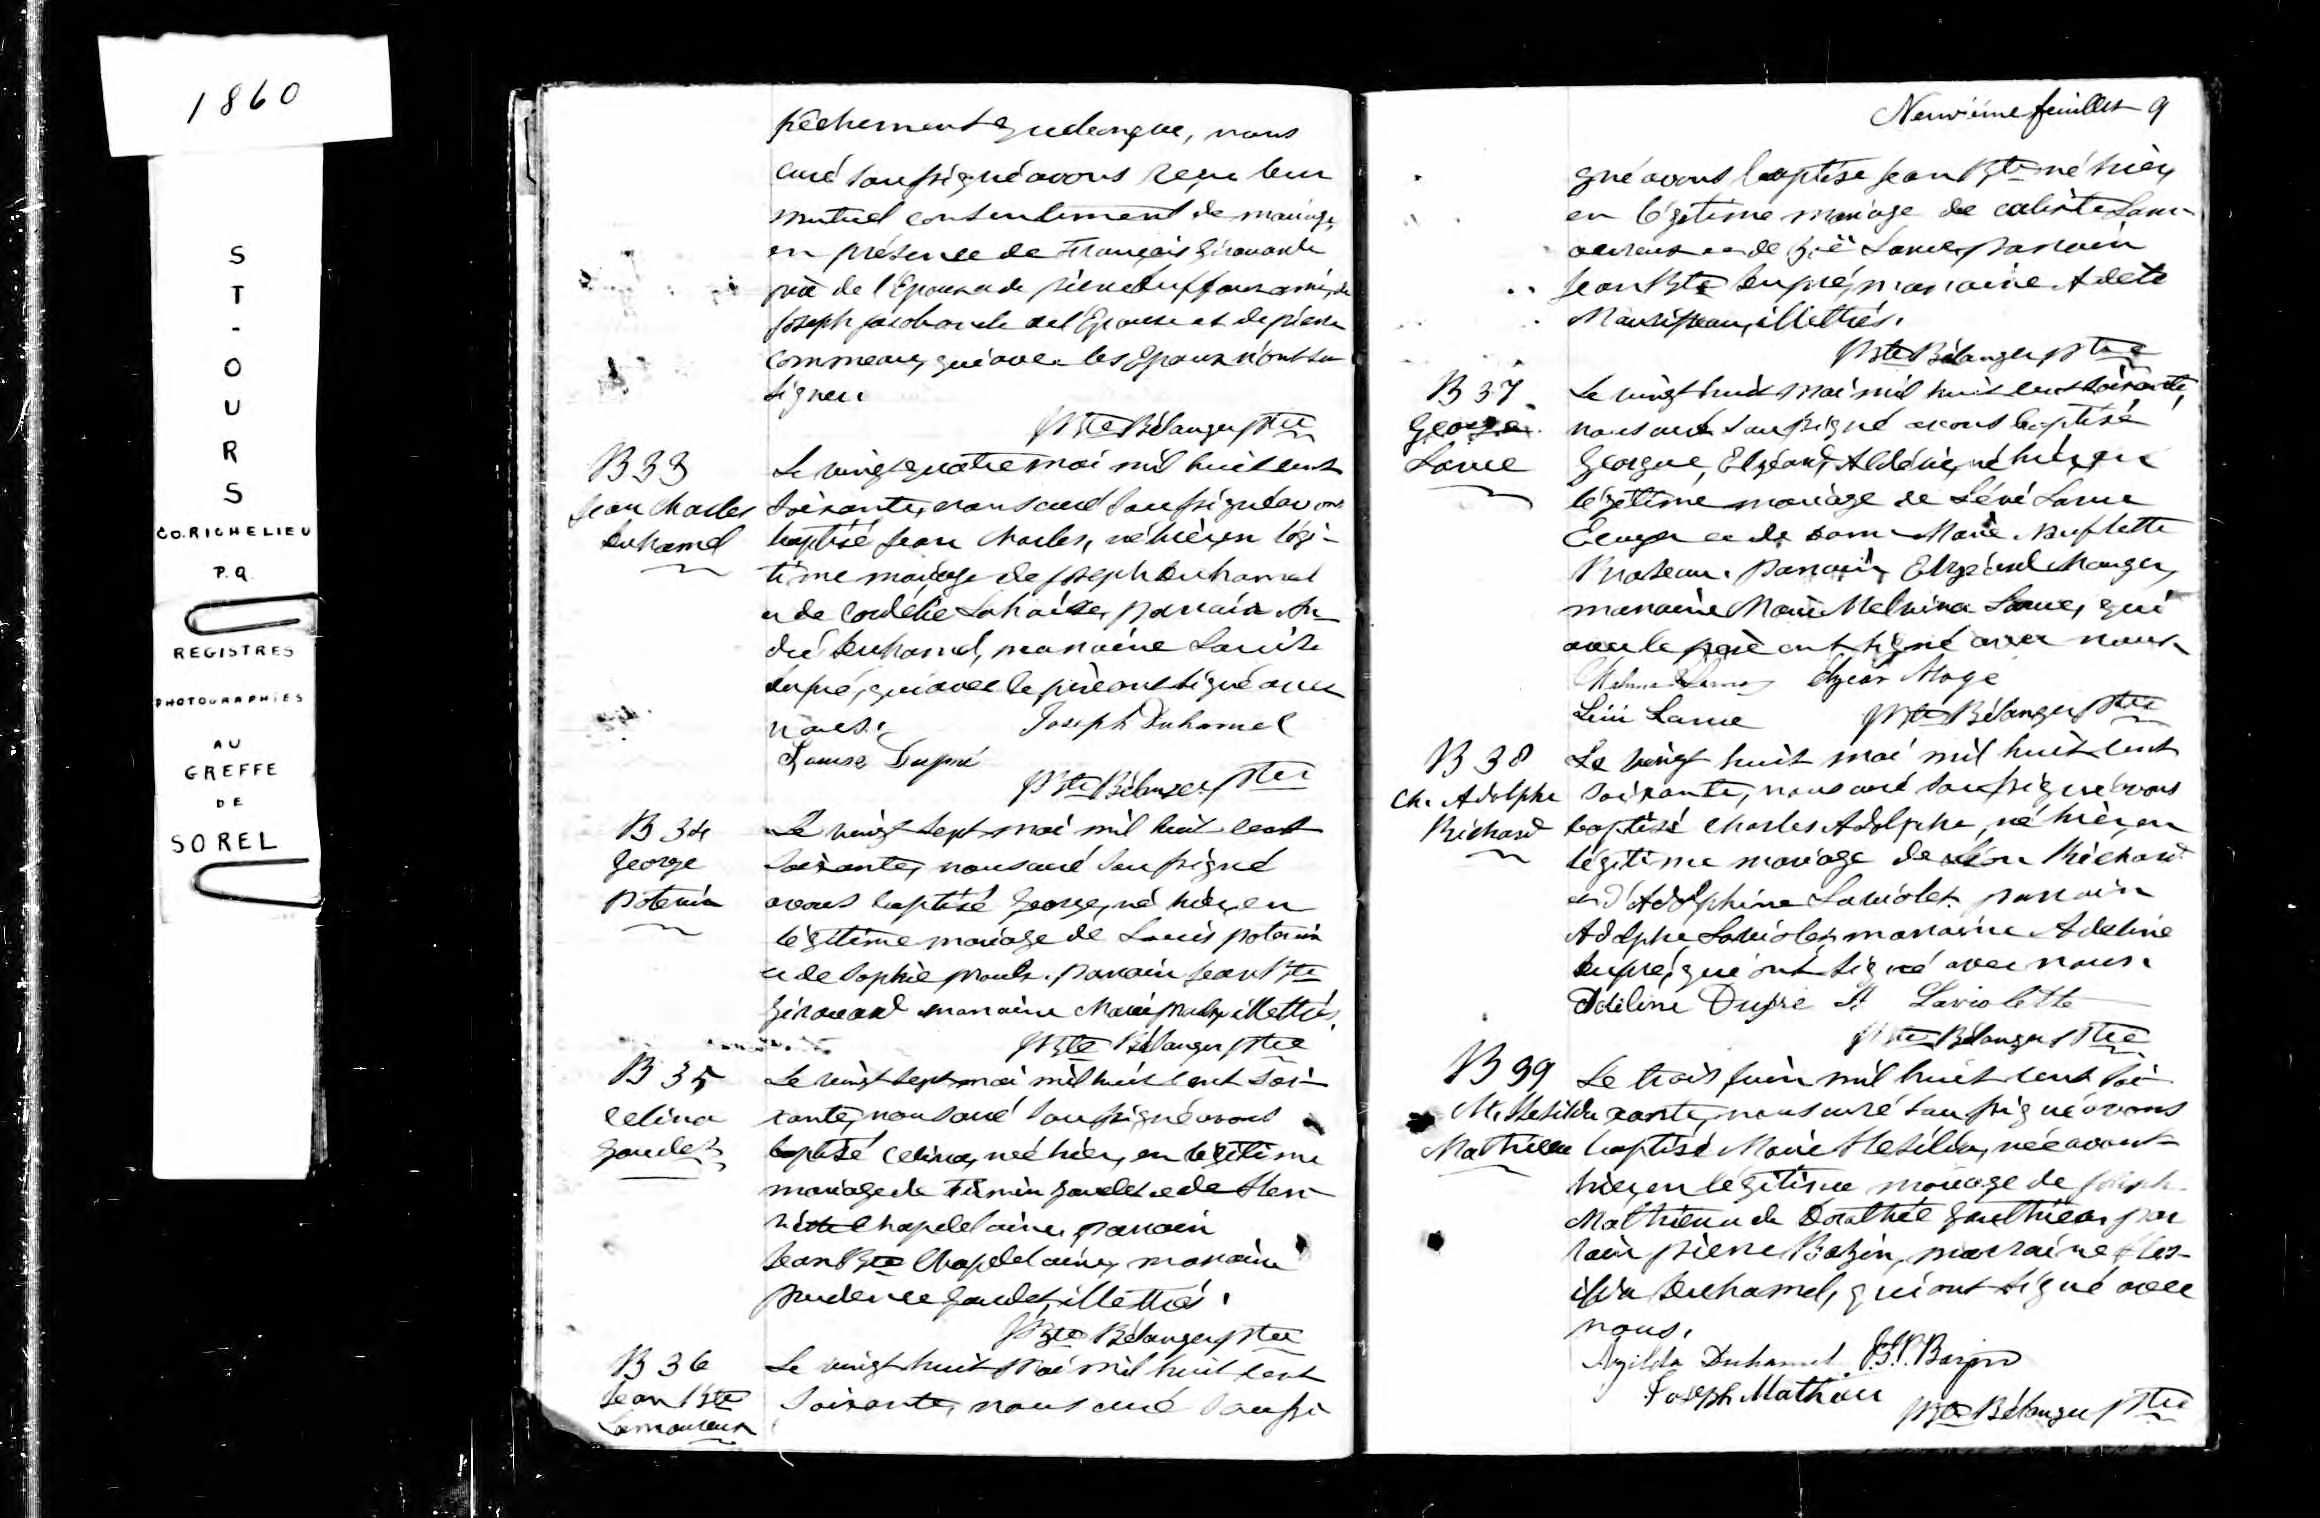 1860
ST-OURS
CO. RICHELIEU
P.Q.
REGISTRES
PHOTOGRAPHIÉS
AU
GREFFE
DE
SOREL
pêchement quelconque, nous
curé soussigné avons reçu leur
mutuel consentement de mariage,
en présence de François Girouard
père de l'Epoux et de pierre ami, de
Joseph de l'Epouse et de pierre
commeau, qui avec les Epoux n'ont su
signer.
JBte Bélanger ptre
B 33
Jean Charles
Duhamel
Le vingt quatre mai mil huit cent
soixante, nous curé soussigné avons
baptisé Jean Charles, né hier, en légi-
time mariage de Joseph Duhamel
et de Cordélie Lahaise, parrain An-
dré Duhamel, marraine Louise
Dupré, qui avec le père ont signé avec
nous.
Joseph Duhamel
Louise Dupré
JBte Bélanger ptre
B 34
George
Potvin
Le vingt sept mai mil huit cent
soixante, nous curé soussigné
avons baptisé George, né hier, en
légitime mariage de Louis potvin
et de Sophie proulx. parrain Jean Bte
Girouard marraine Marie proulx, illettrés.
JBte Bélanger ptre
B 35
Celina
Gaudet
Le vingt sept mai mil huit cent soi-
xante, nous curé soussigné avons
baptisé Celina, née hier, en légitime
mariage de Firmin Gaudet et de Hen-
riette Chapdelaine, parrain
Jean Bte Chapdelaine, marraine
prudence Gaudet, illettrés.
JBte Bélanger ptre
B 36
Jean Bte
Lamoureux
Le vingt huit mai mil huit cent
soixante, nous curé soussi
Neuvième feuillet 9
gné avons baptisé Jean Bte né hier,
en légitime mariage de calixte Lam-
oureux et de Zoë Larue, parrain
Jean Bte Dupré, marraine Adèle
illettrés.
JBte Bélanger ptre
B 37
George
Larue
Le vingt huit mai mil huit cent soixante,
nous curé soussigné avons baptisé
George, Elzéard, né hier, en
légitime mariage de Lévi Larue
Ecuyer et de Dame Marie
Bruneau. parrain, Elzéard
marraine Marie Melvina Larue, qui
avec le père ont signé avec nous.
Elzéar Mogé
Lévi Larue
JBte Bélanger ptre
B 38
Ch. Adolphe
Richard
Le vingt huit mai mil huit cent
soixante, nous curé soussigné avons
baptisé Charles Adolphe, né hier, en
légitime mariage de Léon Richard
et d'Adolphine Laviolet. parrain
Adolphe Laviolet, marraine Adeline
Dupré, qui ont signé avec nous.
Adéline Dupré A Laviolette
JBte Bélanger ptre
B 39
M. Hesilda
Mathieu
Le trois juin mil huit cent soi-
xante, nous curé soussigné avons
baptisé Marie Hesilda, née avant-
hier, en légitime mariage de Joseph
Mathieu et de Dorothée Gauthier, par
rain pierre Bazin, marraine Hes-
ilda Duhamel, qui ont signé avec
nous.
Azilda Duhamel J.P. Bazin
Joseph Mathieu
JBte Bélanger ptre